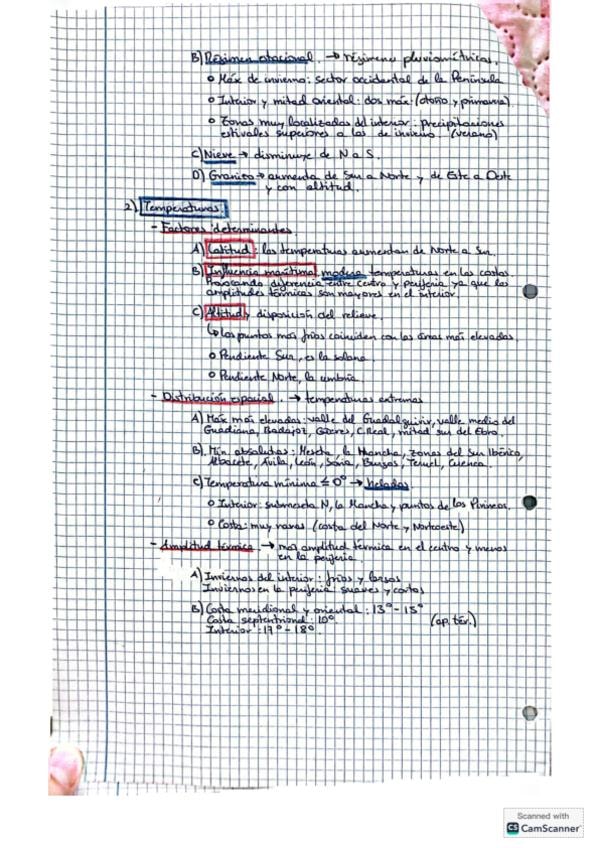 B) Régimen estacional. → régimenes pluviométricos.
o Máx de invierno: sector occidental de la Península
o Interior y mitad oriental: dos máx. (otoño y primavera).
o Zonas muy localizadas del interior: precipitaciones
estivales superiores a las de invierno. (verano)
C) Nieve → disminuye de N a S.
D) Granizo → aumenta de Sur a Norte y de Este a Oeste
y con altitud.
2) Temperaturas:
- Factores determinantes.
A) Latitud: las temperaturas aumentan de Norte a Sur.
B) Influencia marítima: modera temperaturas en las costas.
Provocando diferencia entre centro y periferia ya que las
amplitudes térmicas son mayores en el interior.
C) Altitud y disposición del relieve.
↳ Los puntos más fríos coinciden con las áreas más elevadas.
o Pendiente Sur, es la solana.
o Pendiente Norte, la umbría.
- Distribución espacial. → temperaturas extremas
A) Máx más elevadas: valle del Guadalquivir, valle medio del
Guadiana, Badajoz, Cáceres, C.Real, mitad sur del Ebro.
B) Mín absolutas: Meseta, la Mancha, zonas del Sur Ibérico,
Albacete, Ávila, León, Soria, Burgos, Teruel, Cuenca.
C) Temperatura mínima ≤ 0º → heladas.
o Interior: submeseta N, la Mancha y puntos de los Pirineos.
o Costa: muy raras (costa del Norte y Noroeste)
- Amplitud térmica. → más amplitud térmica en el centro y menos
en la periferia.
A) Inviernos del interior: fríos y largos
Inviernos en la periferia suaves y cortos
B) Costa meridional y oriental: 13º-15º
Costa septentrional: 10º (ap. tér.)
Interior: 17º-18º.
Scanned with
CS CamScanner